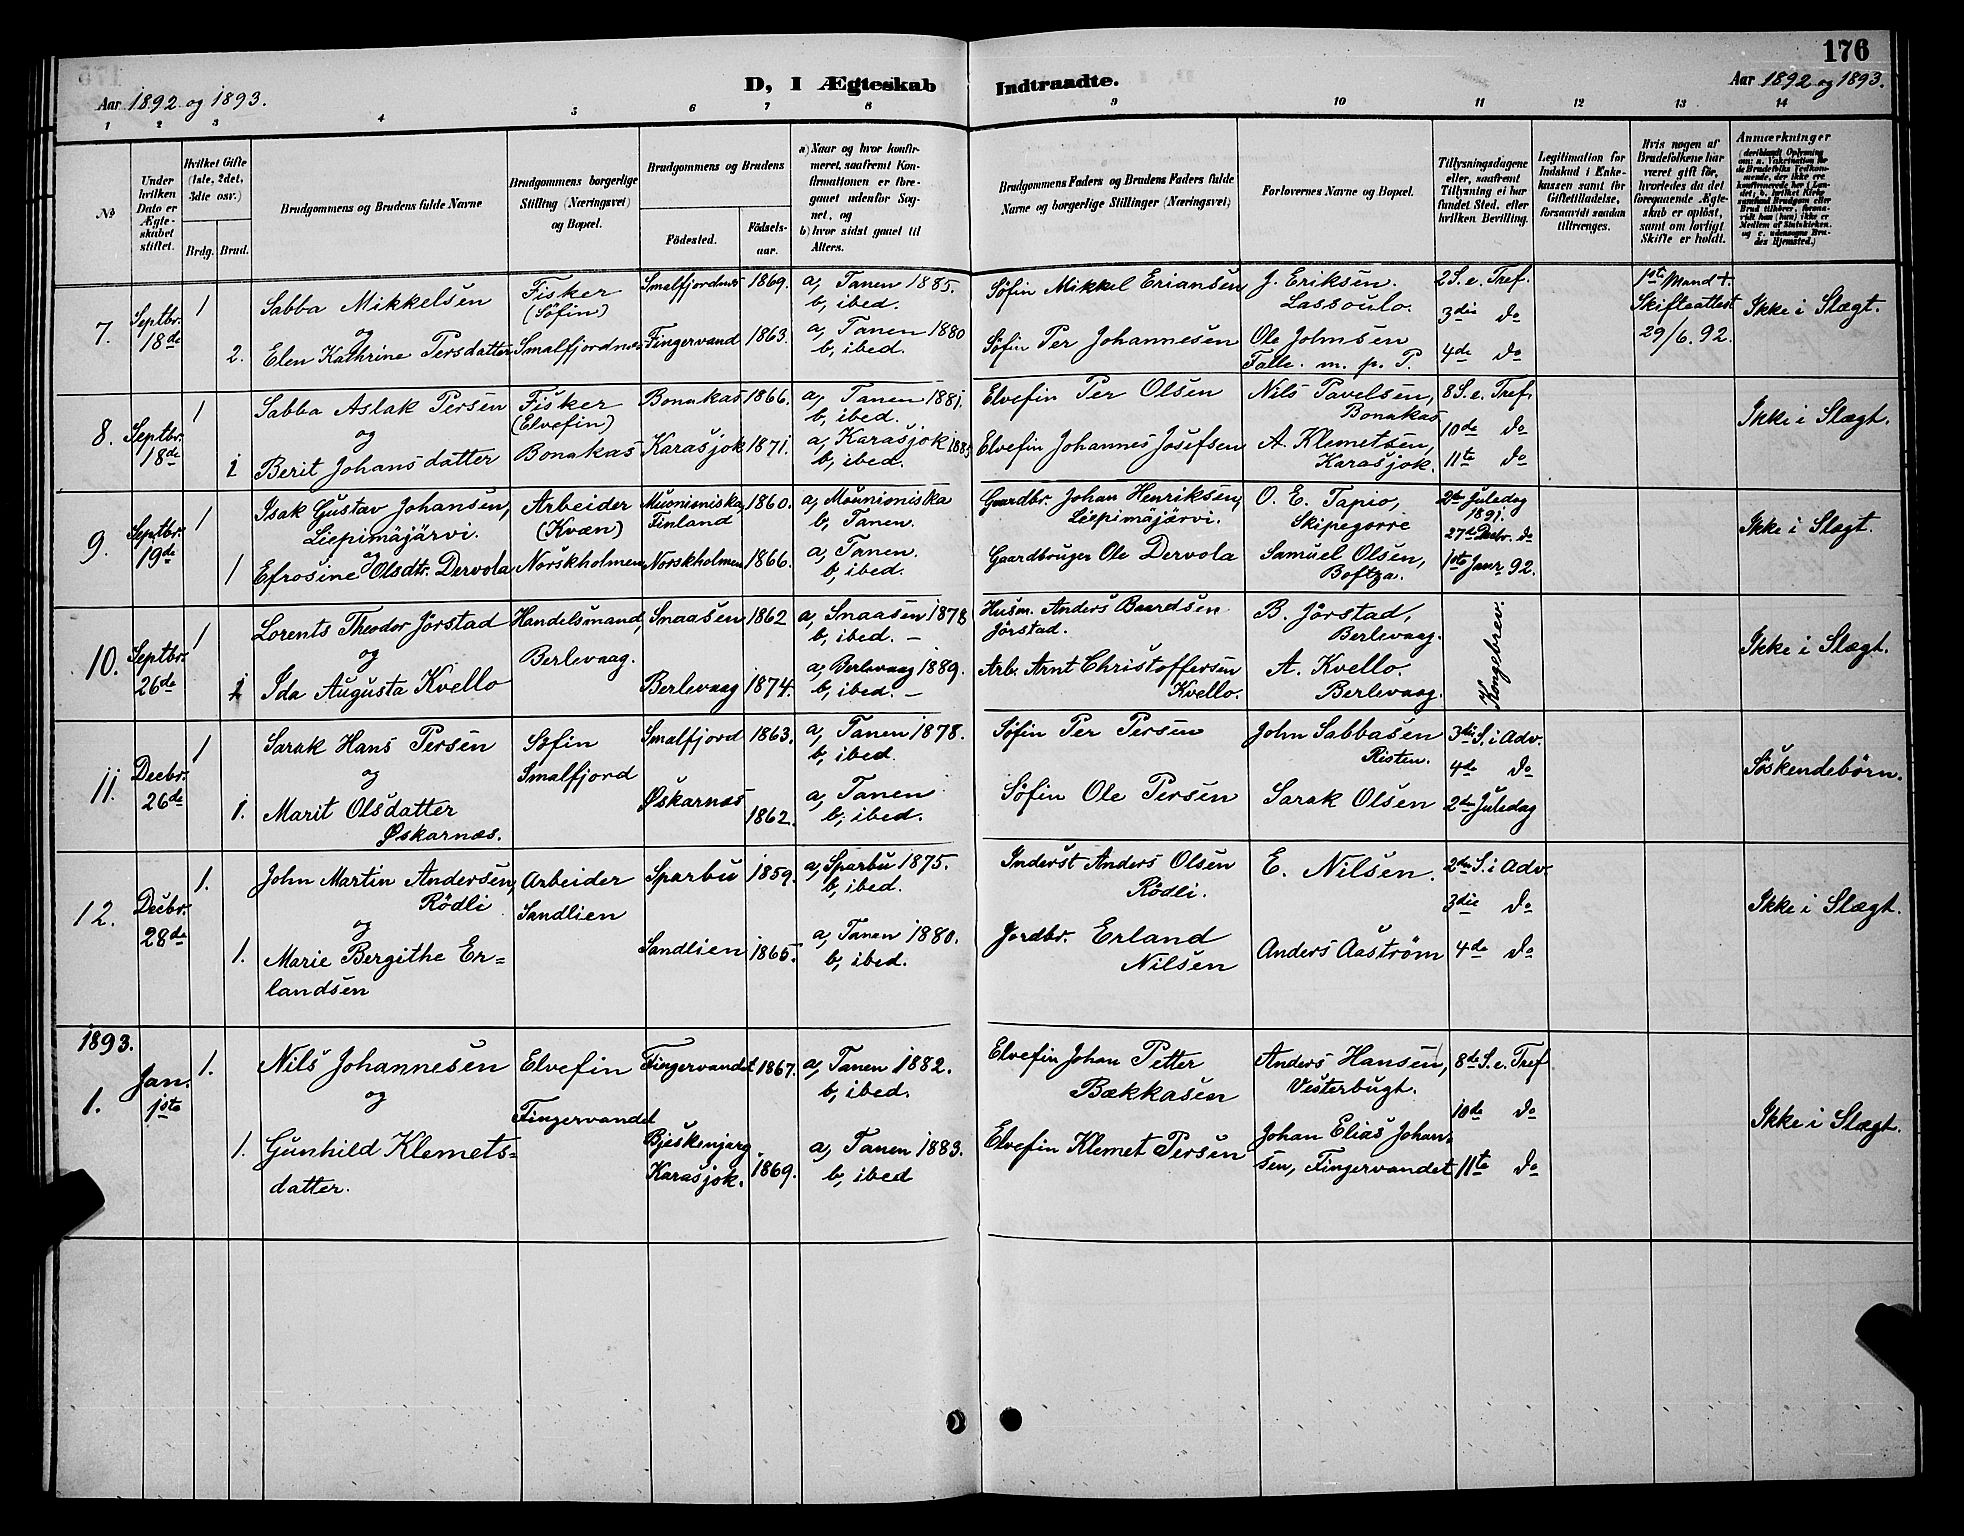 176
D, I Ægteskab Indtraadte.
Aar 1892 og 1893.
Aar 1892 og 1893.
1 2 3 4 5 6 7 8 9 10 11 12 13 14
№
Under hvilken Dato er Ægteskabet stiftet.
Hvilket Gifte (1ste, 2det, 3die osv.)
Brdg. Brud.
Brudgommens og Brudens fulde Navne
Brudgommens borgerlige Stilling (Næringsvei) og Bopæl.
Brudgommens og Brudens
Fødested.
Fødselsaar.
a) Naar og hvor konfirmeret, saafremt Konfirmationen er foregaaet udenfor Sognet, og
b) hvor sidst gaaet til Alters.
Brudgommens Faders og Brudens Faders fulde Navne og borgerlige Stillinger (Næringsvei)
Forlovernes Navne og Bopæl.
Tillysningsdagene eller, saafremt Tillysning ei har fundet Sted, efter hvilken Bevilling.
Legitimation for Indskud i Enkekassen samt for Giftetilladelse, forsaavidt saadan tiltrænges.
Hvis nogen af Brudefolkene har været gift før, hvorledes da det foregaaende Ægteskab er opløst, samt om lovligt Skifte er holdt.
Anmærkninger
7. Septbr. 18de 1 Sabba Mikkelsen Fisker (Söfin) Smalfjordnæs 1869. a, Tanen 1885. b, ibed. Söfin Mikkel Eriansen J. Eriksen. Lassoulo. 2 S. e. Tref. 1ste Mand +. Skifteattest 29/6. 92. Ikke i Slægt.
og 3die do
2. Elen Kathrine Persdatter Smalfjordnæs Fingervand 1863. a, Tanen 1880 b, ibed. Söfin Per Johannesen Ole Johnsen Talle. m. p. P. 4de do
8. Septbr. 18de 1 Sabba Aslak Persen Fisker (Elvefin) Bonakas 1866. a, Tanen 1881. b, ibed. Elvefin Per Olsen Nils Pavelsen, Bonakas 8 S. e. Tref. Ikke i Slægt.
og 10de do
1 Berit Johansdatter Bonakas Karasjok 1871. a, Karasjok 1885 b, ibed. Elvefin Johannes Josefsen A. Klemetsen, Karasjok. 11te do
9. Septbr. 19de 1 Isak Gustav Johansen, Liepimäjärvi. Arbeider (Kvæn) Muonioniska, Finland 1860. a, Mounioniska b, Tanen. Gaardbr. Johan Henriksen, Liepimäjärvi. O. E. Tapio, Skipegorre 2den Juledag 1891. Ikke i Slægt.
og 27de Decbr. do
1 Efrosine Olsdtr. Dervola Norskholmen Norskholmen 1866. a, Tanen. b, ibed. Gaardbruger Ole Dervola Samuel Olsen, Boftza. 1ste Janr 92.
10. Septbr. 26de 1 Lorents Theodor Jörstad Handelsmand, Snaasen 1862 a, Snaasen 1878 b, ibed. – Husm. Anders Baardsen Jörstad. B. Jörstad, Berlevaag. Kongebrev. Ikke i Slægt.
og Berlevaag.
1 Ida Augusta Kvello Berlevaag 1874. a, Berlevaag 1889. b, ibed. – Arb. Arnt Christoffersen Kvello. A. Kvello. Berlevaag.
11. Decbr. 26de 1 Sarak Hans Persen Söfin Smalfjord 1863. a, Tanen 1878. b, ibed. Söfin Per Persen John Sabbasen Risten. 3die S. i Adv. Søskendebörn.
og Smalfjord 4de do
1. Marit Olsdatter Øskarnæs. Øskarnæs 1862. a, Tanen b, ibed. Söfin Ole Persen Sarak Olsen 2den Juledag
12. Decbr. 28de 1. John Martin Andersen, Rödli Arbeider Sparbu 1859. a, Sparbu 1875. b, ibed. Inderst Anders Olsen Rödli. E. Nilsen. 2den S. i Adv. Ikke i Slægt.
og Sandlien 3die do
1. Marie Bergithe Er= landsen Sandlien 1865. a, Tanen 1880. b, ibed. Jordbr. Erland Nilsen Anders Aaström 4de do
1893.
1. Jan. 1ste 1. Nils Johannesen Elvefin Fingervandet 1867. a, Tanen 1882. b, ibed. Elvefin Johan Petter Bækkasen Anders Hansen, Vesterbugt. 8de S. e. Tref Ikke i Slægt.
og Fingervandet 10de do
1. Gunhild Klemets= datter. Bjeskenjarg Karasjok. 1869. a, Tanen 1883. b, ibed Elvefin Klemet Persen Johan Elias Johan= sen, Fingervandet 11te do